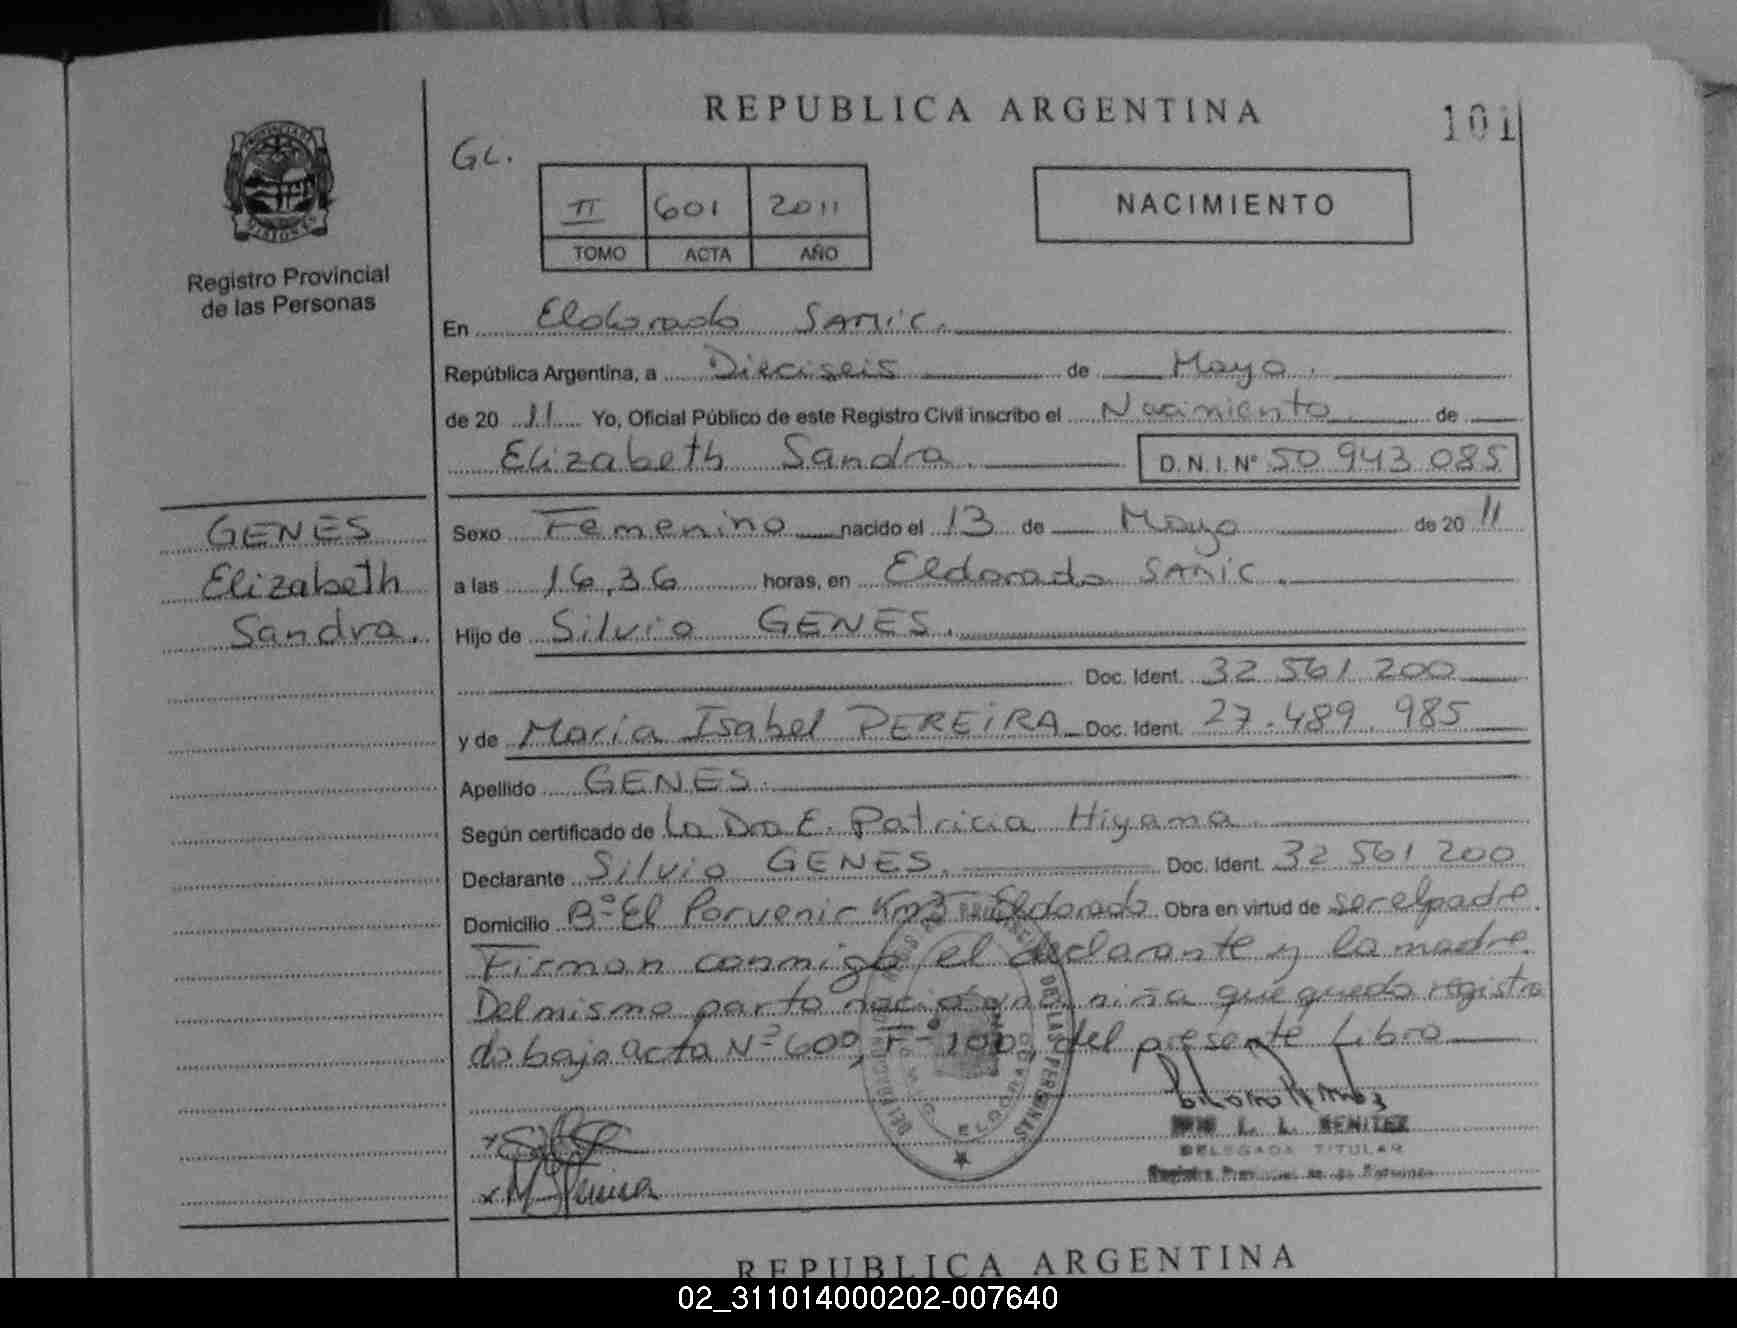 REPUBLICA ARGENTINA
101
GL.
II 601 2011
TOMO ACTA AÑO
NACIMIENTO
Registro Provincial
de las Personas
En Eldorado SAMIC.
República Argentina, a Dieciseis de Mayo.
de 20 11 Yo, Oficial Público de este Registro Civil inscribo el Nacimiento de
Elizabeth Sandra. D.N.I. Nº 50 943 085
GENES
Elizabeth
Sandra.
Sexo Femenino nacido el 13 de Mayo de 20 11
a las 16,36 horas, en Eldorado SAMIC.
Hijo de Silvio GENES.
Doc. Ident. 32 561 200
y de María Isabel PEREIRA Doc. Ident. 27.489.985
Apellido GENES.
Según certificado de La Dra E. Patricia Hiyama.
Declarante Silvio GENES. Doc. Ident. 32 561 200
Domicilio Bº El Porvenir Km3 Eldorado Obra en virtud de ser el padre.
Firman conmigo el declarante y la madre.
Del mismo parto nació una niña que quedo registra
do bajo acta Nº 600, Fº 100, del presente Libro
DE LAS PERSONAS
ELDORADO
L. L. BENITEZ
DELEGADA TITULAR
REPUBLICA ARGENTINA
02_311014000202-007640